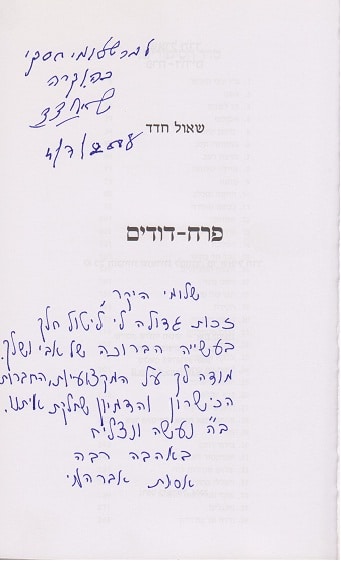 למר שלומי חסקי
בהוקרה
שאול חדד
שאול חדד
פרח-דודים
שלומי היקר
זכות גדולה לי ליטול חלק
בעשייה הברוכה של אבי ושלך.
מודה לך על המקצועיות, החברות
הכישרון והדמיון שחלקת איתנו.
בה נעשה ונצליח
באהבה רבה
אסנת